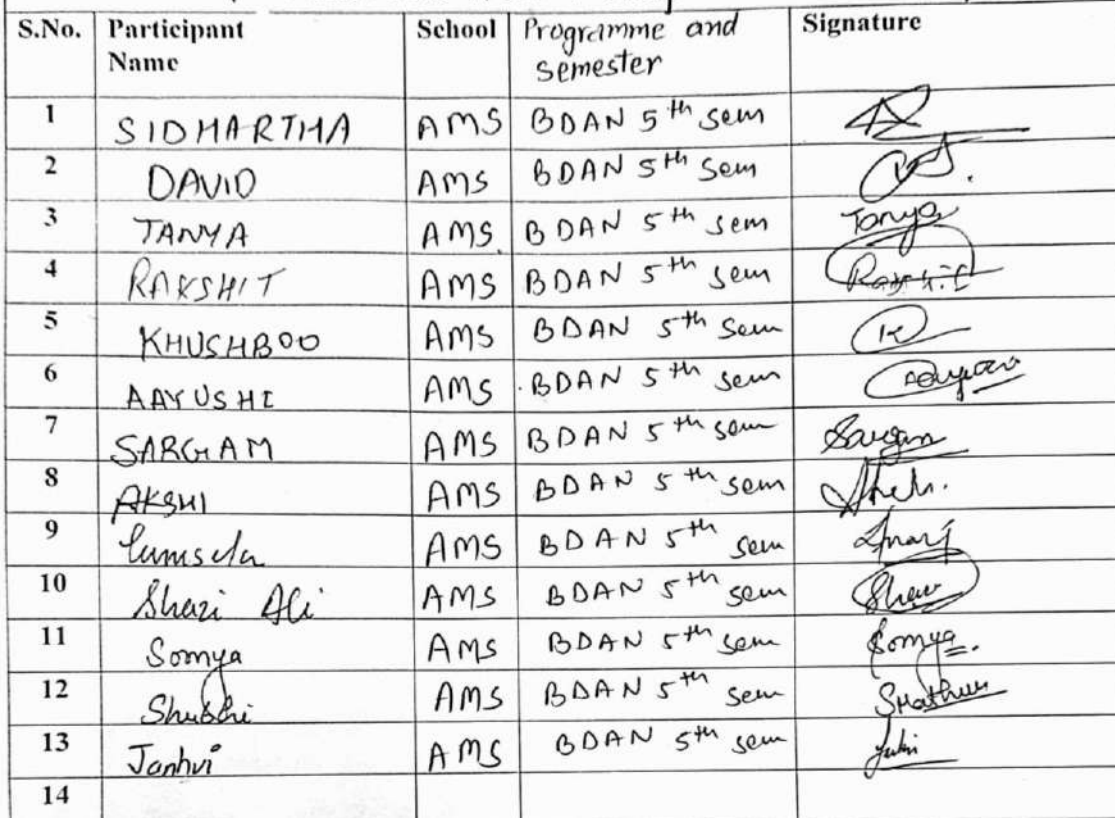 S.No. Participant Name School Programme and semester Signature
1 SIDHARTHA AMS BDAN 5th sem
2 DAVID AMS BDAN 5th sem
3 TANYA AMS BDAN 5th sem Tanya
4 RAKSHIT AMS BDAN 5th sem Rakshit
5 KHUSHBOO AMS BDAN 5th sem K
6 AAYUSHI AMS BDAN 5th sem
7 SARGAM AMS BDAN 5th sem Sargam
8 AKSHI AMS BDAN 5th sem
9 AMS BDAN 5th sem
10 Shazi Ali AMS BDAN 5th sem
11 Somya AMS BDAN 5th sem Somya
12 Shubhi AMS BDAN 5th sem
13 Janhvi AMS BDAN 5th sem
14